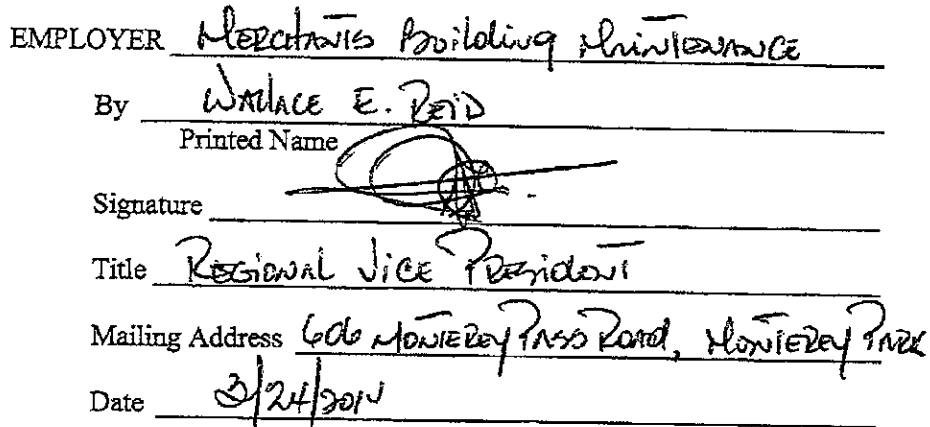 EMPLOYER Merchants Building Maintenance
By Wallace E. Reid
Printed Name
Signature
Title Regional Vice President
Mailing Address 606 Monterey Pass Road, Monterey Park
Date 3/24/2014